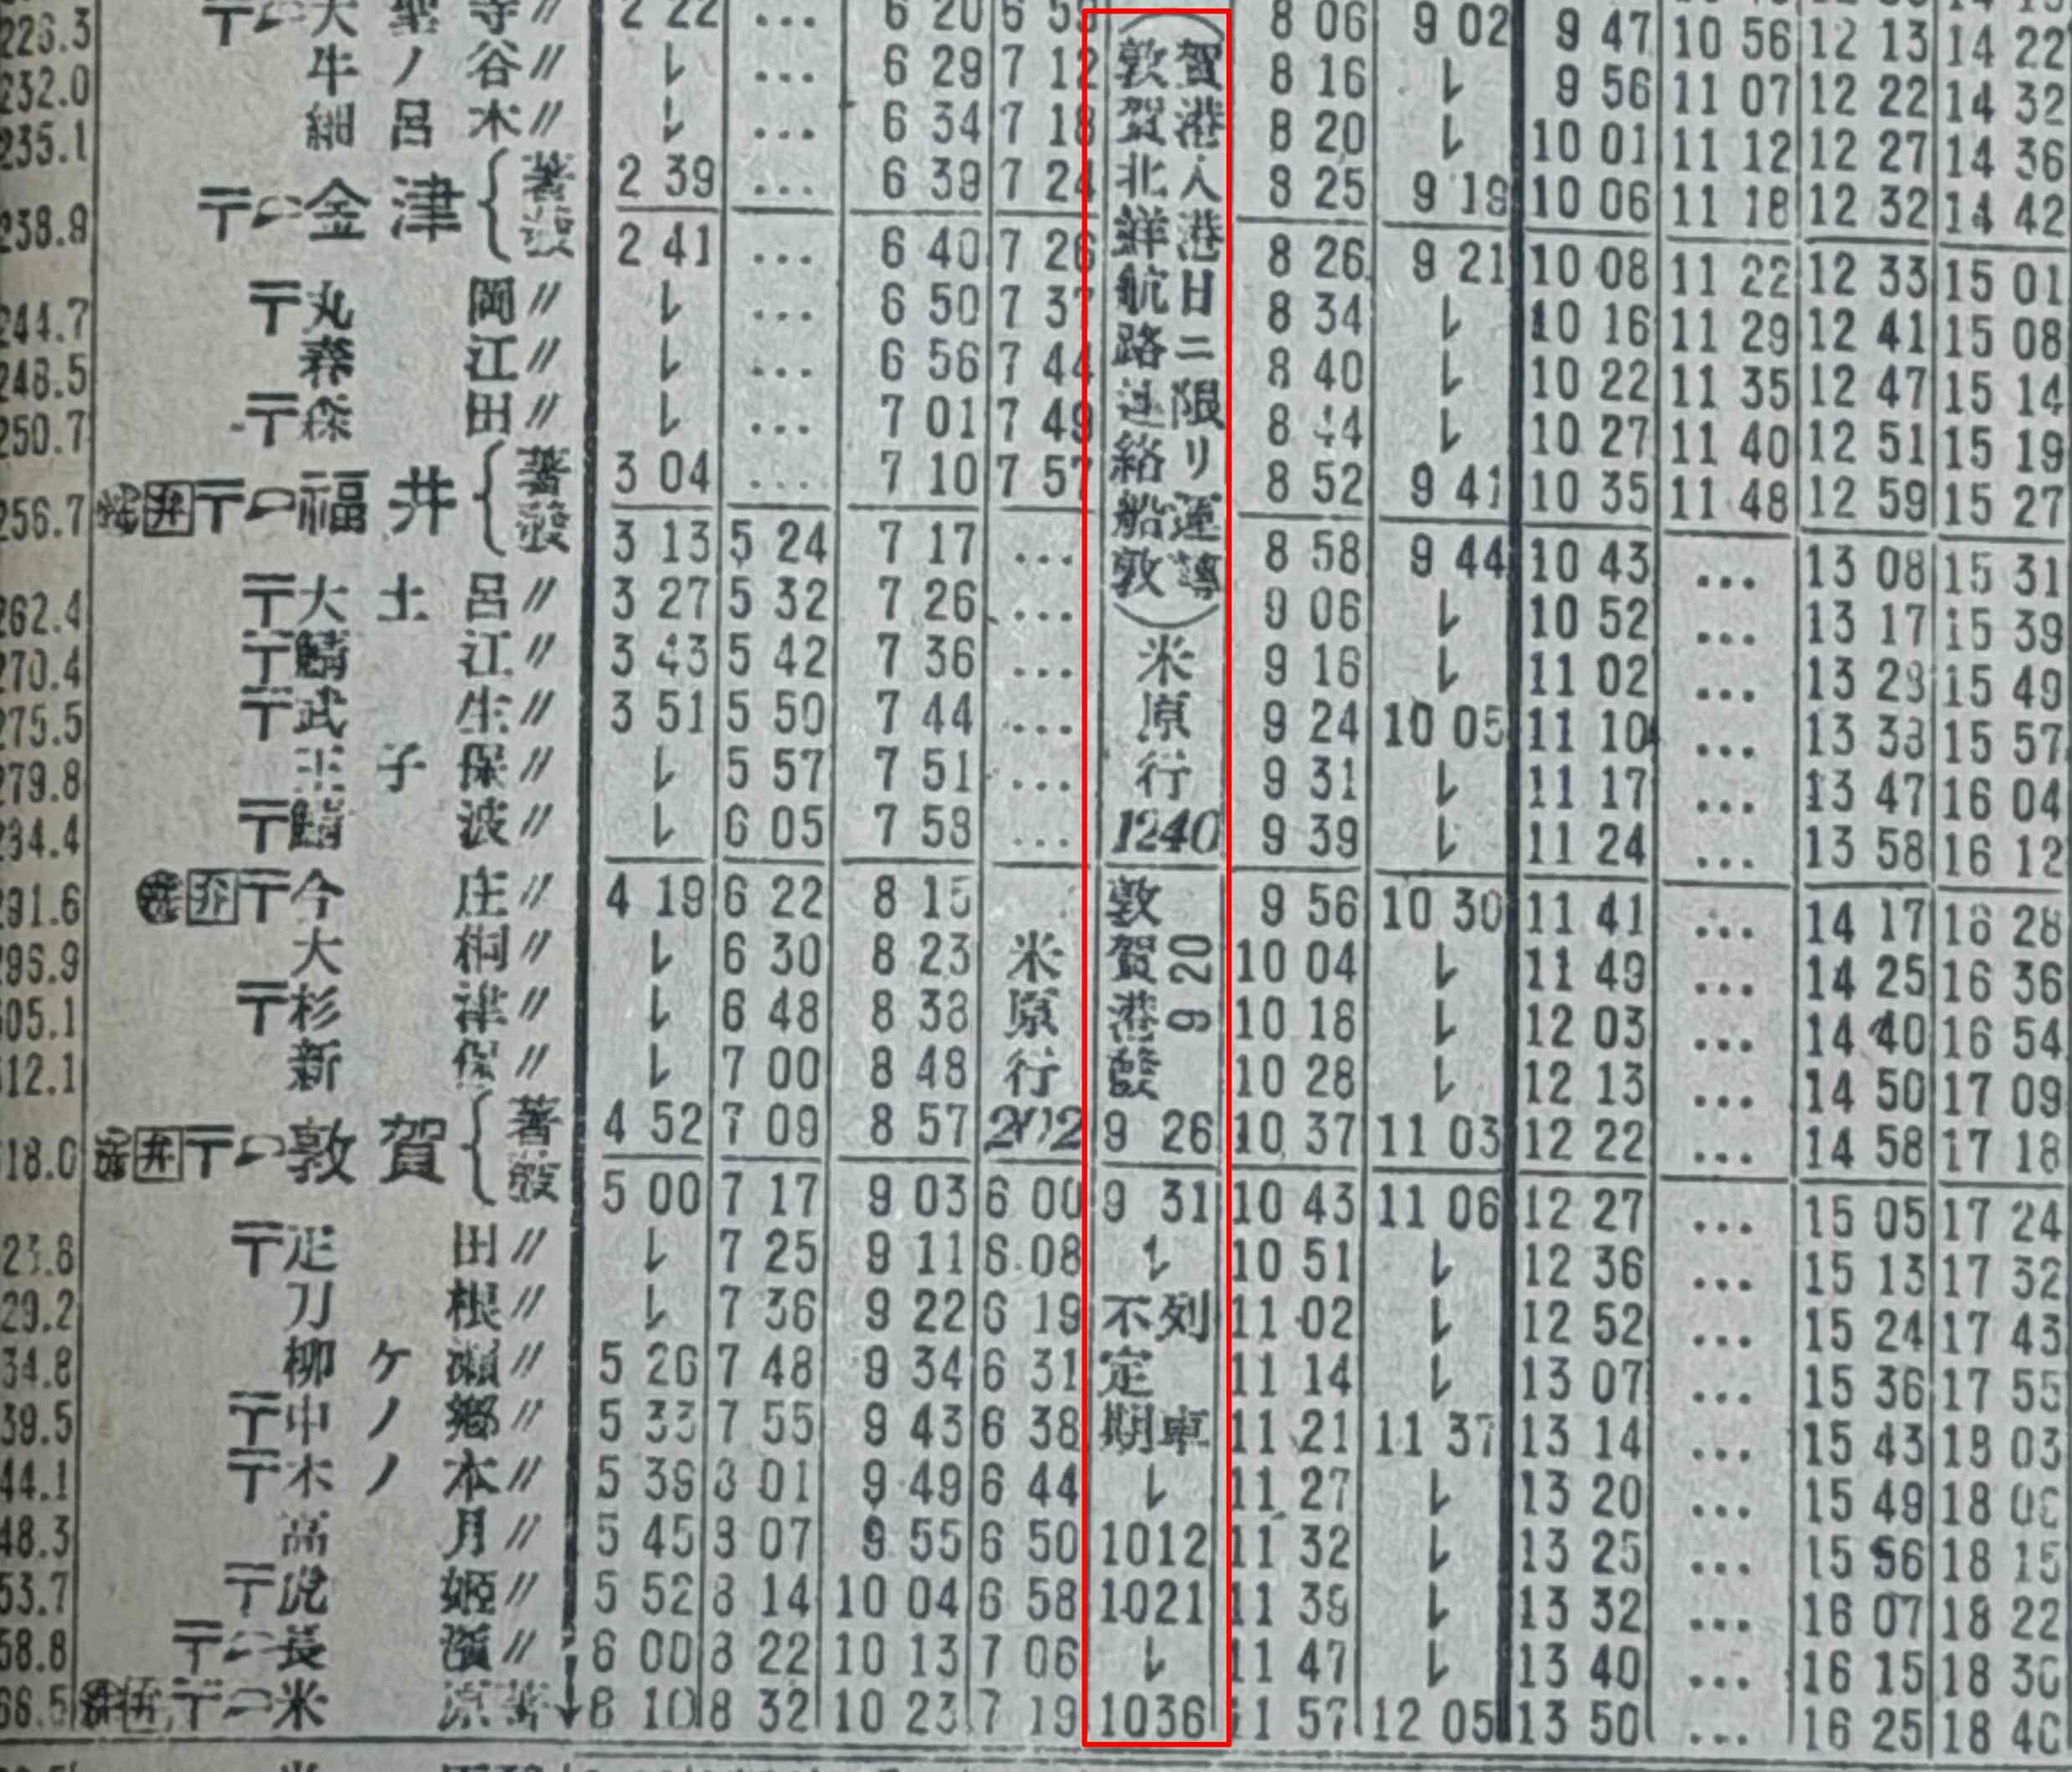 226.3 〒 大聖寺〃 2 22 … 6 20 8 06 9 02 9 47 10 56 12 13 14 22
232.0 牛ノ谷〃 ↓ … 6 29 7 12 8 16 ↓ 9 56 11 07 12 22 14 32
235.1 細呂木〃 ↓ … 6 34 7 18 8 20 ↓ 10 01 11 12 12 27 14 36
238.9 〒 金津 著 2 39 … 6 39 7 24 8 25 9 19 10 06 11 18 12 32 14 42
發 2 41 … 6 40 7 26 8 26 9 21 10 08 11 22 12 33 15 01
244.7 〒丸岡〃 ↓ … 6 50 7 37 8 34 ↓ 10 16 11 29 12 41 15 08
248.5 江〃 ↓ … 6 56 7 44 8 40 ↓ 10 22 11 35 12 47 15 14
250.7 〒森田〃 ↓ … 7 01 7 49 8 44 ↓ 10 27 11 40 12 51 15 19
256.7 弁〒 福井 著 3 04 … 7 10 7 57 8 52 9 41 10 35 11 48 12 59 15 27
發 3 13 5 24 7 17 … 8 58 9 44 10 43 … 13 08 15 31
262.4 〒大土呂〃 3 27 5 32 7 26 … 9 06 ↓ 10 52 … 13 17 15 39
270.4 〒鯖江〃 3 43 5 42 7 36 … 9 16 ↓ 11 02 … 13 29 15 49
275.5 〒武生〃 3 51 5 50 7 44 … 9 24 10 05 11 10 … 13 38 15 57
279.8 王子保〃 ↓ 5 57 7 51 … 9 31 ↓ 11 17 … 13 47 16 04
284.4 〒鯖波〃 ↓ 6 05 7 58 … 9 39 ↓ 11 24 … 13 58 16 12
(敦賀北鮮航路連絡船敦
賀港入港日ニ限リ運轉)
米原行
1240
291.6 弁〒今庄〃 4 19 6 22 8 15 9 56 10 30 11 41 … 14 17 16 28
296.9 大桐〃 ↓ 6 30 8 23 10 04 ↓ 11 49 … 14 25 16 36
305.1 〒杉津〃 ↓ 6 48 8 38 10 18 ↓ 12 03 … 14 40 16 54
312.1 新保〃 ↓ 7 00 8 48 10 28 ↓ 12 13 … 14 50 17 09
米原行
202
敦賀港發 9 20
318.0 弁〒 敦賀 著 4 52 7 09 8 57 9 26 10 37 11 03 12 22 … 14 58 17 18
發 5 00 7 17 9 03 6 00 9 31 10 43 11 06 12 27 … 15 05 17 24
23.8 〒疋田〃 ↓ 7 25 9 11 6 08 ↓ 10 51 ↓ 12 36 … 15 13 17 32
29.2 刀根〃 ↓ 7 36 9 22 6 19 11 02 ↓ 12 52 … 15 24 17 43
34.8 柳ケ瀬〃 5 26 7 48 9 34 6 31 11 14 ↓ 13 07 … 15 36 17 55
39.5 〒中ノ郷〃 5 33 7 55 9 43 6 38 11 21 11 37 13 14 … 15 43 18 03
不定期
列車
44.1 〒木ノ本〃 5 39 8 01 9 49 6 44 ↓ 11 27 ↓ 13 20 … 15 49
48.3 高月〃 5 45 8 07 9 55 6 50 1012 11 32 ↓ 13 25 … 15 56 18 15
53.7 〒虎姫〃 5 52 8 14 10 04 6 58 1021 11 39 ↓ 13 32 … 16 07 18 22
58.8 〒 長濱〃 6 00 8 22 10 13 7 06 ↓ 11 47 ↓ 13 40 … 16 15 18 30
66.5 〒 米原著 6 10 8 32 10 23 7 19 1036 11 57 12 05 13 50 … 16 25 18 40